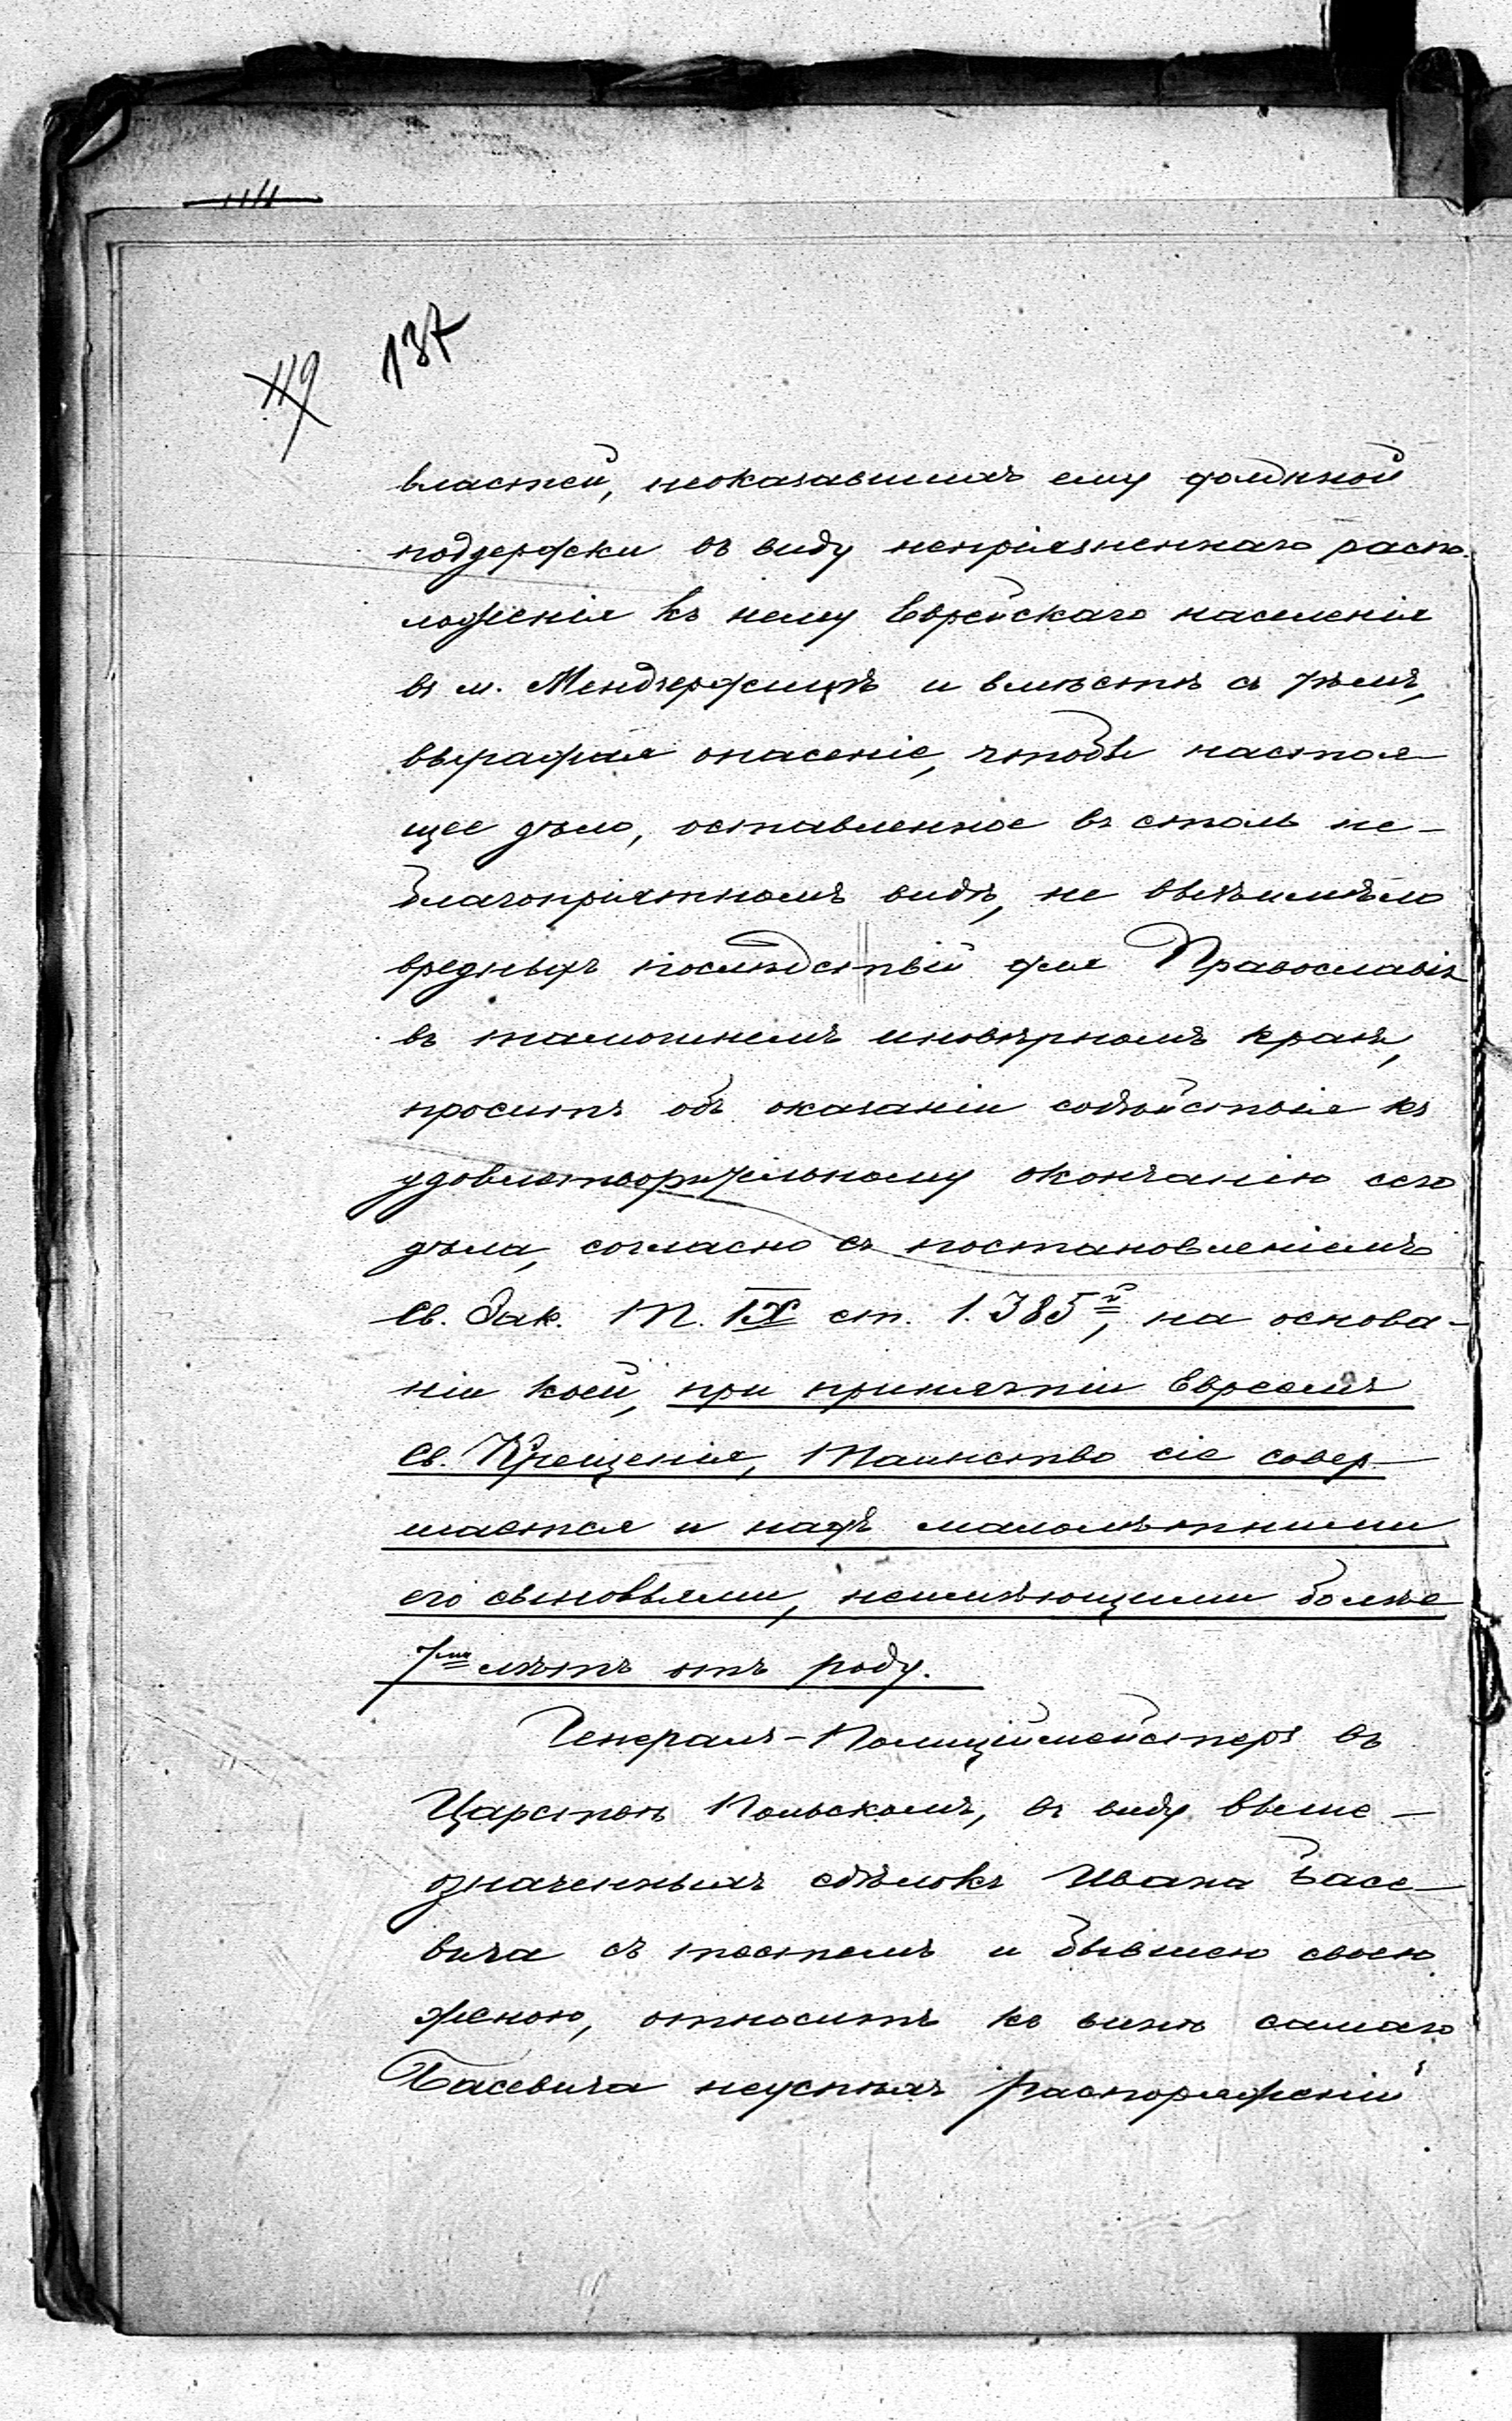 137
119
властей, неоказавшихъ ему должной
поддержки въ виду непріязненнаго распо-
ложенія къ нему Еврейскаго населенія
въ м. Мендзержицѣ и вмѣстѣ съ тѣмъ,
выражая опасеніе, чтобы настоя-
щее дѣло, оставленное въ столь не-
благопріятномъ видѣ, не возъимѣло
вредныхъ послѣдствій для Православія
въ тамошнемъ иновѣрномъ краѣ,
проситъ объ оказаніи содѣйствія къ
удовлетворительному окончанію сего
дѣла, согласно съ постановленіемъ
Св. Зак. Т. IX ст. 1.385й, на основа-
ніи коей, при принятіи Евреемъ
Св. Крещенія, Таинство сіе совер-
шается и надъ малолѣтними
его сыновьями, неимѣющими болѣе
7ми лѣтъ отъ роду.
Генералъ-Полиціймейстеръ въ
Царствѣ Польскомъ, въ виду выше-
означенныхъ сдѣлокъ Ивана Басе-
вича съ тестемъ и бывшею своею
женою, относитъ къ винѣ самаго
Басевича неуспѣхъ распоряженій